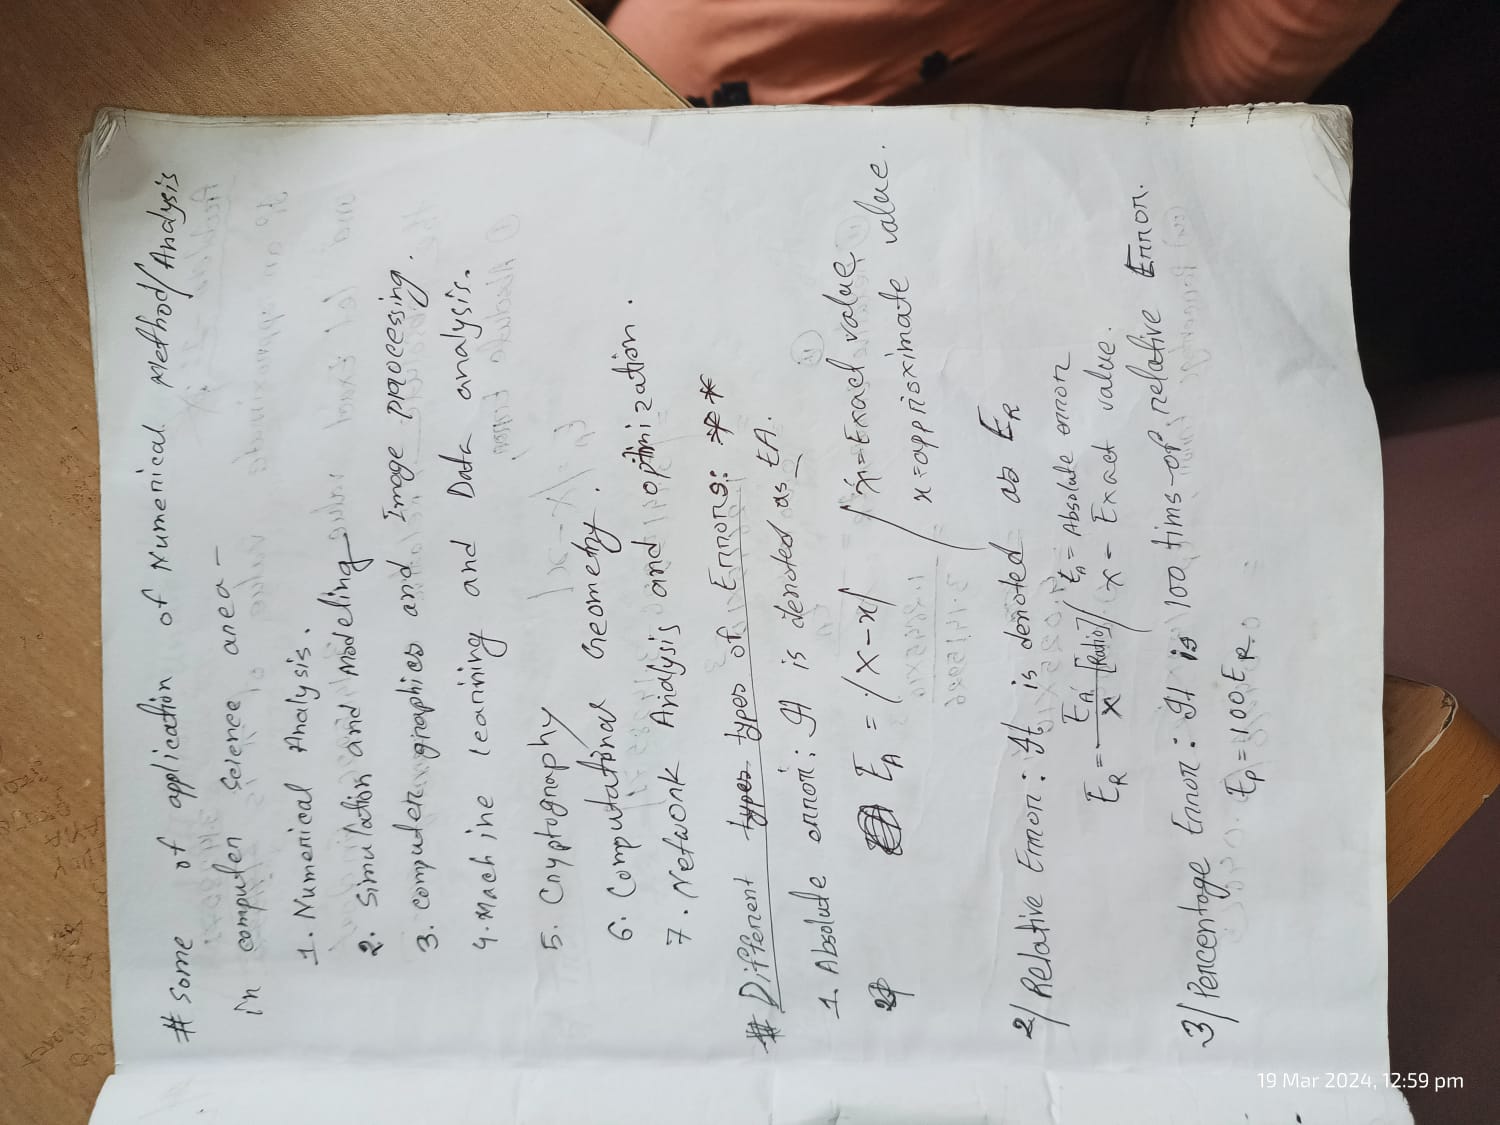 # Some of application of Numerical Method/Analysis
in computer science area -
1. Numerical Analysis.
2. Simulation and modeling
3. computer graphics and Image processing.
4. Machine learning and Data analysis.
5. Cryptography
6. Computational Geometry.
7. Network Analysis and optimization.
# Different types types of Errors: **
1. Absolute error: It is denoted as EA.
E_A = |X-x| / X = Exact value
x = approximate value.
2) Relative Error: It is denoted as E_R
E_R = E_A/X [Ratio] / E_A = Absolute error
X - Exact value.
3) Percentage Error: It is 100 tims of relative Error.
E_P = 100 E_R
19 Mar 2024, 12:59 pm